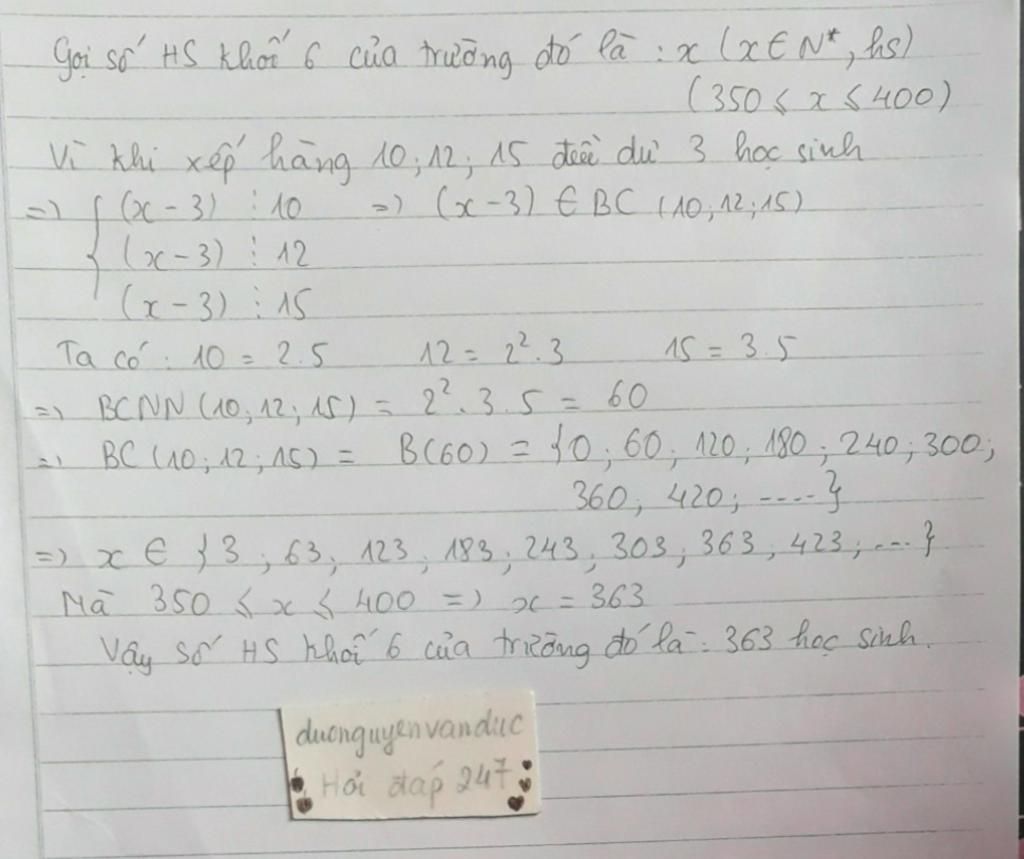 Gọi số HS khối 6 của trường đó là : x (x ∈ N*, hs)
(350 ≤ x ≤ 400)
Vì khi xếp hàng 10; 12; 15 đều dư 3 học sinh
=> { (x - 3) ⋮ 10 => (x - 3) ∈ BC (10; 12; 15)
(x - 3) ⋮ 12
(x - 3) ⋮ 15
Ta có : 10 = 2.5 12 = 2².3 15 = 3.5
=> BCNN (10; 12; 15) = 2².3.5 = 60
=> BC (10; 12; 15) = B(60) = {0; 60; 120; 180; 240; 300;
360; 420; ....}
=> x ∈ {3; 63; 123; 183; 243; 303; 363; 423; ...}
Mà 350 ≤ x ≤ 400 => x = 363
Vậy số HS khối 6 của trường đó là : 363 học sinh.
duonguyenvanduc
Hỏi đáp 247